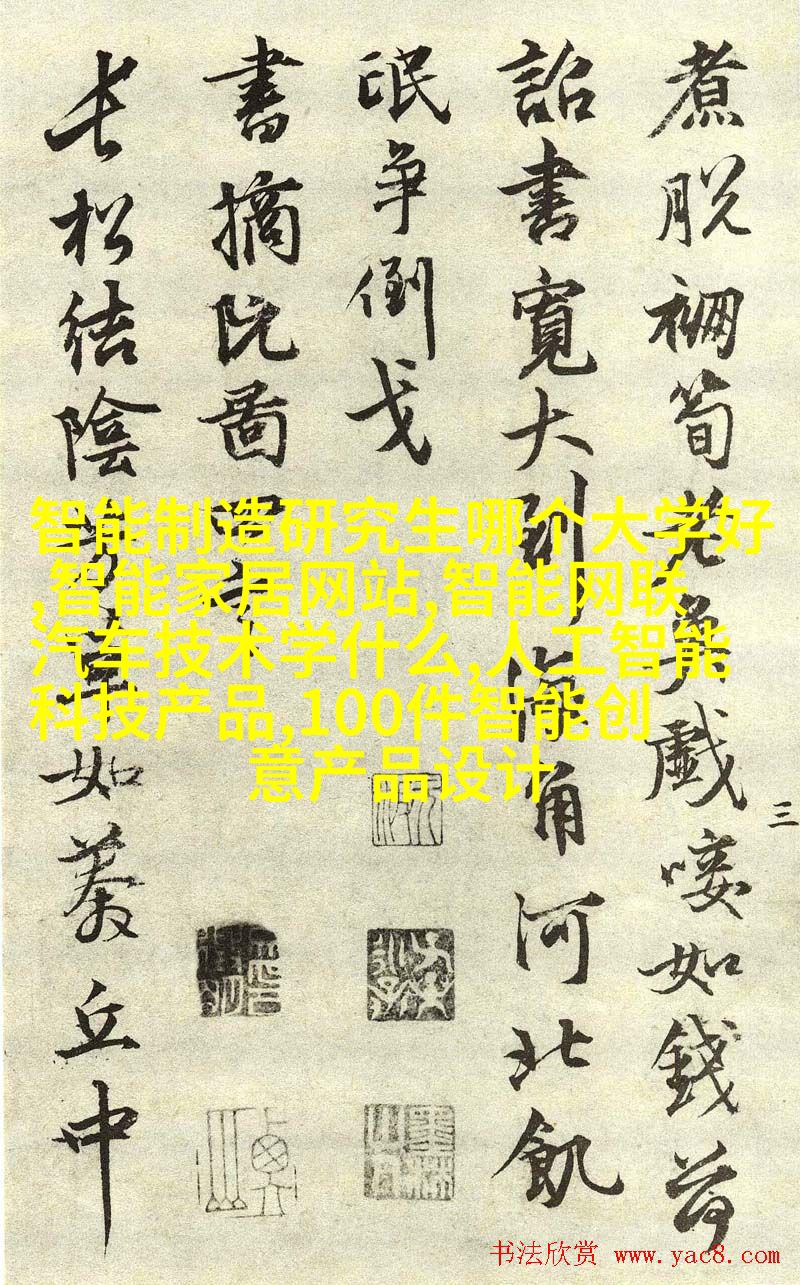 煮脱 筍 戲 如錢荷
詔書寬大到海角河北飢
氓争倒戈
書摘阮圖
長松結陰 如 丘中
三
智能制造研究生哪个大学好
,智能家居网站,智能网联
汽车技术学什么,人工智能
科技产品,100件智能创
意产品设计
书法欣赏 www.yac8.com